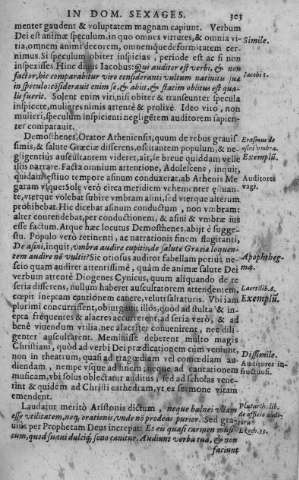 IN DOM. SEXAGES. 303
menter gaudent & voluptatem magnam capiunt. Verbum
Dei est animæ speculum, in quo omnes virtutes, & omnia vi-
tia, omnem animi decorem, omnemque deformitatem cer-
nimus Si speculum obiter inspicias, periode est ac si non
inspexisses. Hinc diuus Iacobus: Qui auditor est verbi, & non
factor, hic comparabitur viro consideranti vultum natiuitatis suæ
in speculo: considerauit enim se, & abiit, & statim oblitus est qua-
lis fuerit. Solent enim viri, nisi obiter & transeunter specula
inspicere, mulieres nimis attente & prolixe. Ideo viro, non
mulieri, speculum inspicienti negligentem auditorem sapien-
ter comparauit.
Demosthenes, Orator Atheniensis, quum de rebus grauis-
simis, & salute Græciæ differens, oscitantem populum, & ne-
gligentius auscultantem videret, ait, se breue quiddam velle
illis narrare. Facta omnium attentione, Adolescens, inquit,
quidam æstiuo tempore asinum conduxerat, ab Athenis Me-
garam vsque: Sole verò circa meridiem vehementer flagran-
te, vterque volebat subire vmbram asini, sed vterque alterum
prohibebat. Hic dicebat asinum conductum, non vmbram:
alter contendebat, per conductionem, & asini & vmbræ ius
esse factum. Atque hæc locutus Demosthenes, abijt è sugge-
sto. Populo verò retinenti, ac narrationis finem flagitanti,
De asino, inquit, vmbra audire cupitis, de salute Græciæ loquen-
tem audire nō vultis? Sic otiosus auditor fabellam perius ne-
scio quam auditet attentissimè, quàm de animæ salute Dei
verbum attente Diogenes Cynicus, quum aliquando de re
seria differens, nullum haberet auscultatorem attendentem,
cœpit ineptam cantionem canere, velut saltaturus. Vbi iam
plurimi concurrissent, obiurgauit illos, quod ad stulta & in-
epta frequentes & alacres accurrerent, ad seria verò, & ad
bene viuendum vtilia nec alacriter conuenirent, nec dili-
genter auscultarent. Meminisse debetent multo magis
Christiani, quod ad verbi Dei prædicationem cum veniunt,
non in theatrum, quasi ad tragœdiam vel comœdiam au-
diendam, nempe vsque ad finem, neque ad cantationem
musicam, vbi solus oblectatur auditus, sed ad scholas vene-
rint & quidem ad Christi cathedram, vt ex sermone vitam
emendent.
Laudatur meritò Aristonis dictum, neque balnei vllam
esse vtilitatem, neq; orationis, vnde nō prodeas purior. Sed gra-
uius per Prophetam Deus increpat: Es eis quasi carmen musi-
cum, quod suaui dulciq; sono canitur. Audiunt verba tua, & non
faciunt
Simile.
Iacobi 1.
Exemplū.
Auditores
vagi.
Apophtheg-
ma.
Exemplū.
Dissimile.
Auditores in-
fructuosi.
Plutarch. lib.
Ezech. 33.